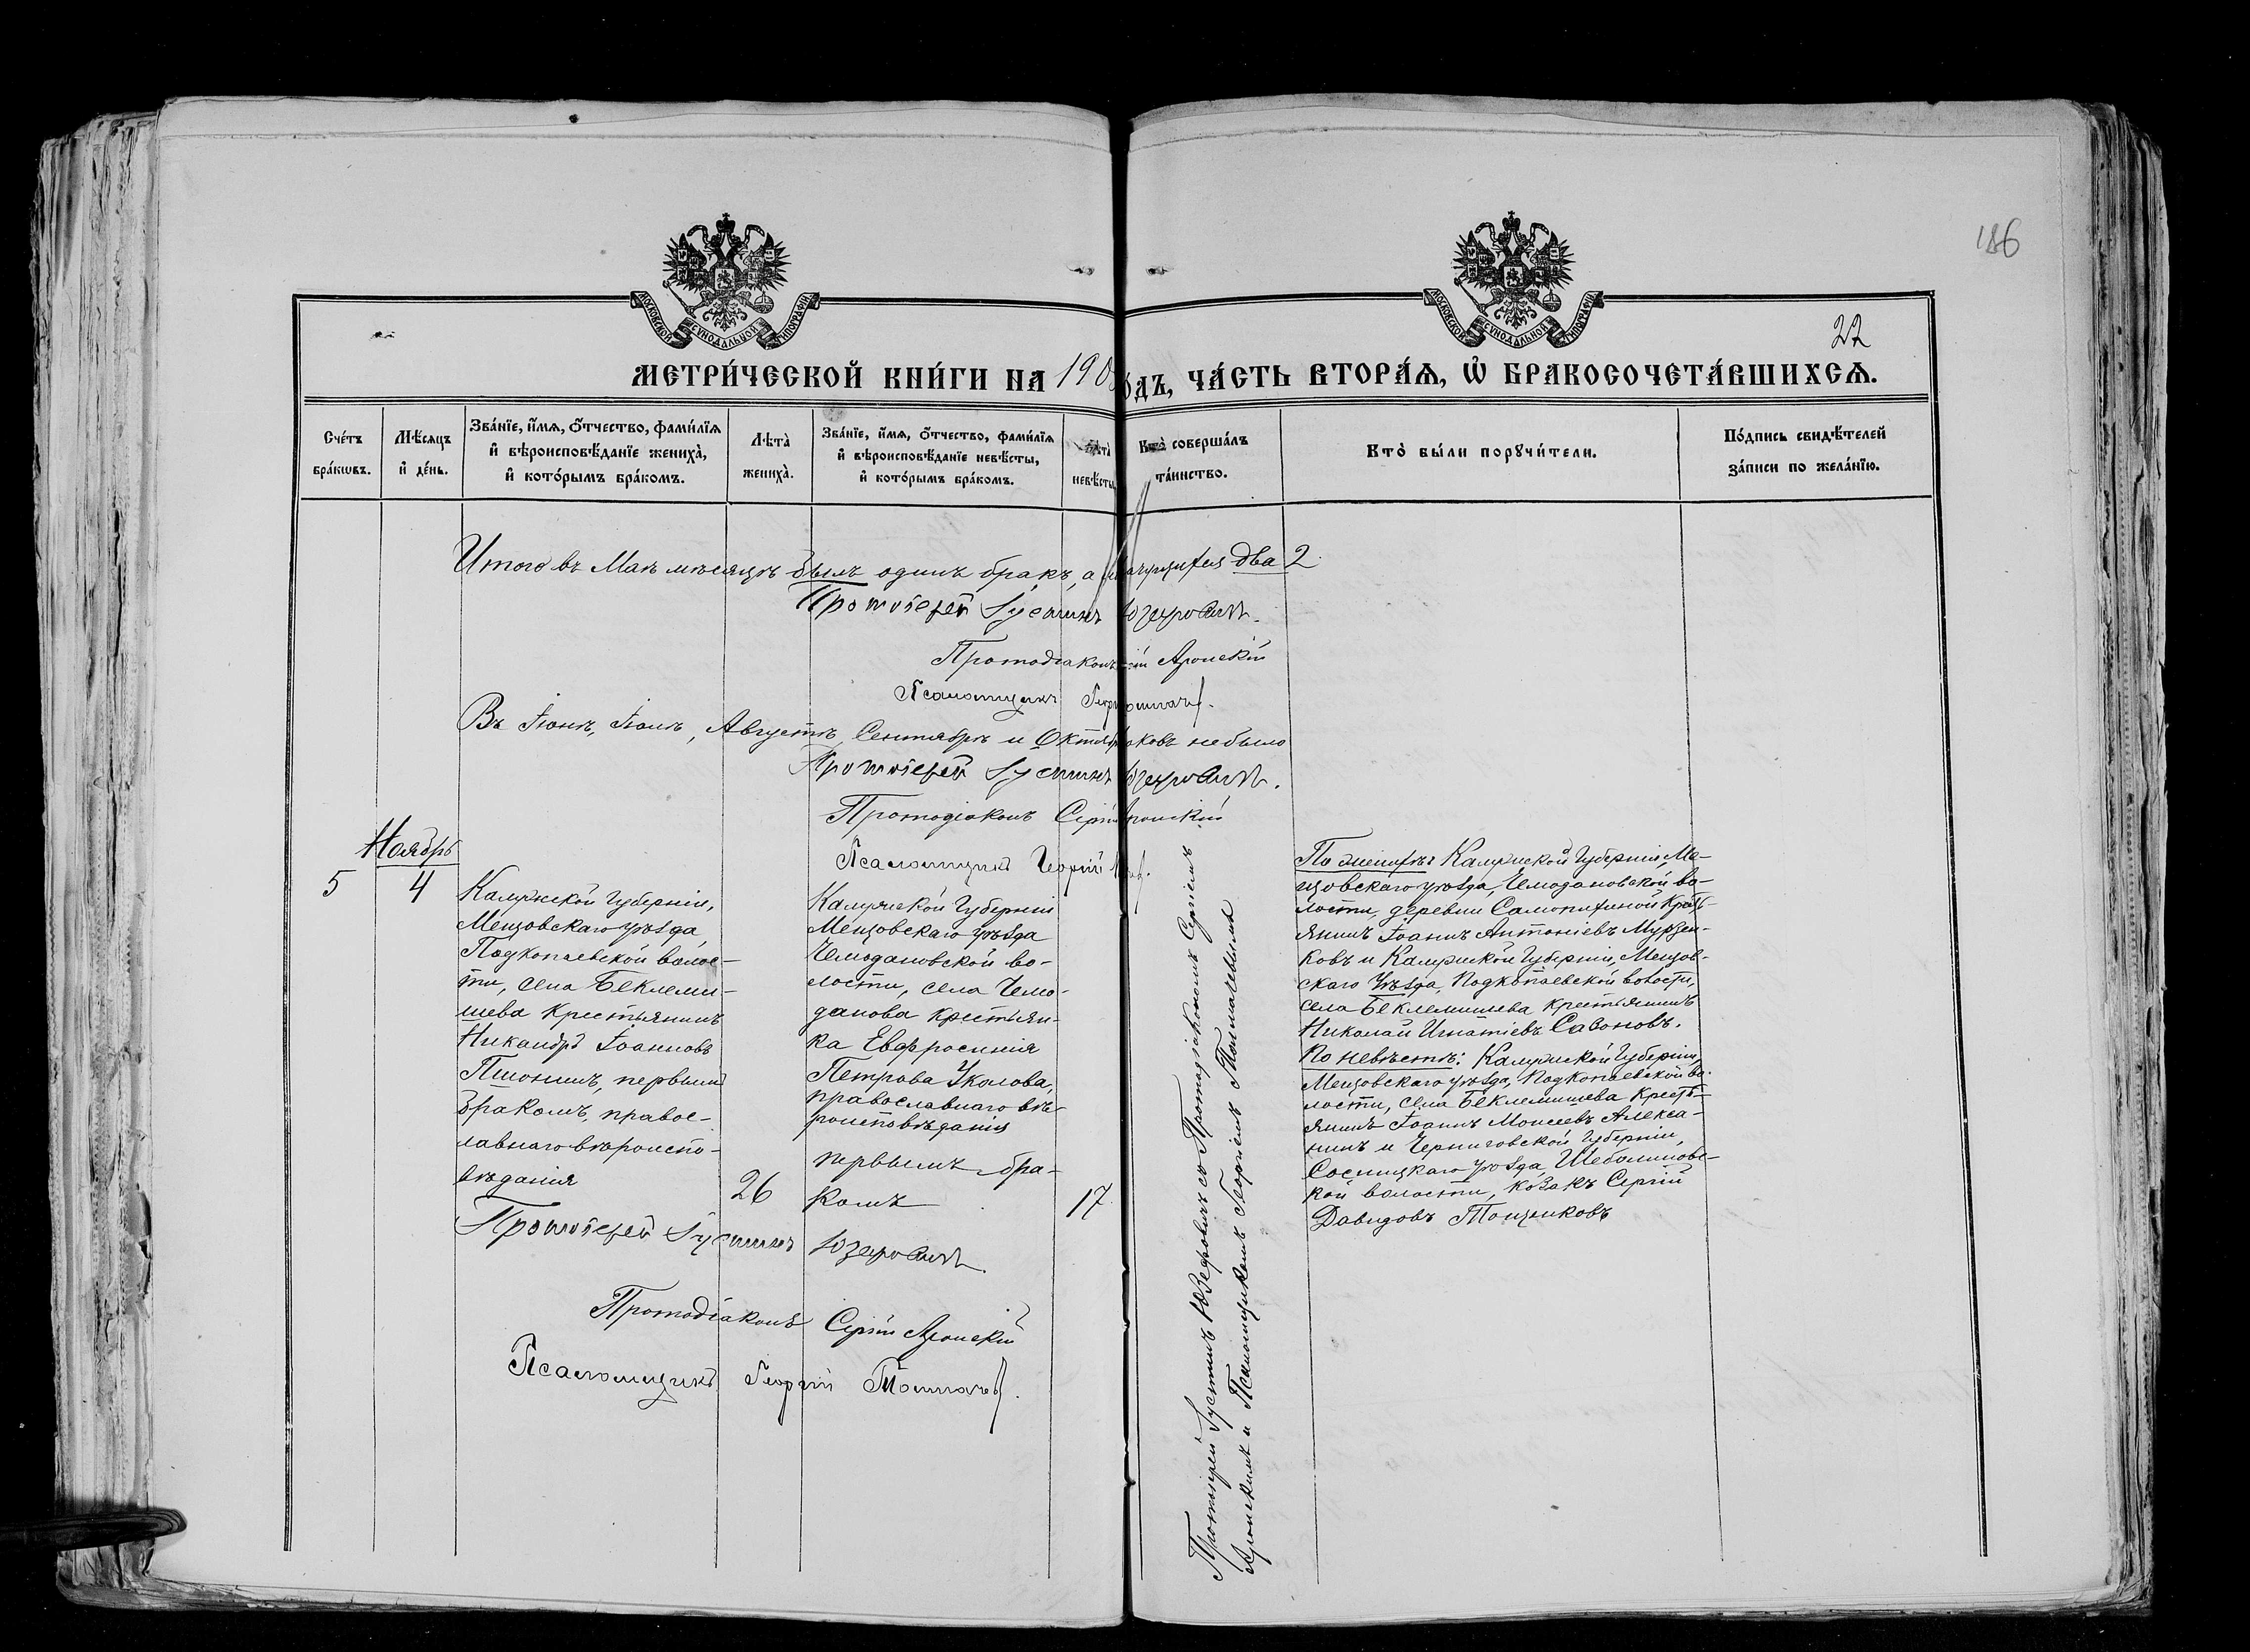 186
МОСКОВСКОЙ СѴНОДАЛЬНОЙ ТИПОГРАФІИ
МОСКОВСКОЙ СѴНОДАЛЬНОЙ ТИПОГРАФІИ
22
МЕТРИ́ЧЕСКОЙ КНИ́ГИ НА 190 одъ, ЧА́СТЬ ВТОРА́Ѧ, Ѡ҆ БРАКОСОЧЕТА́ВШИХСѦ.
Сче́тъ бра́кѡвъ.
Мѣ́сѧцъ и҆ де́нь.
Зва́нїе, и҆́мѧ, ѻ҆́тчество, фами́лїѧ и҆ вѣроисповѣ́данїе жениха̀, и҆ кото́рымъ бра́комъ.
Лѣта̀ жениха̀.
Зва́нїе, и҆́мѧ, ѻ҆́тчество, фами́лїѧ и҆ вѣроисповѣ́данїе невѣ́сты, и҆ кото́рымъ бра́комъ.
Лѣта̀ невѣ́сты
Кто̀ соверша́лъ та́инство.
Кто̀ бы́ли порꙋчи́тели.
По́дпись свидѣ́телей за́писи по жела́нїю.
Итого въ Маѣ мѣсяцѣ былъ одинъ бракъ, а два 2.
Протоіерей Іустинъ Юзефовичъ.
Протодіаконъ Аронскій
Псаломщикъ
Въ Іюнѣ, Іюлѣ, Августѣ, Сентябрѣ и Октябрѣ не было
Протоіерей Іустинъ Юзефовичъ.
Протодіаконъ Сергій Аронскій
Псаломщикъ Георгій
Ноябрь
5
4
Калужской Губерніи,
Мещовскаго уѣзда,
Подкопаевской волос-
ти, села Беклеми-
шева Крестьянинъ
Никандръ Іоанновъ
Пшонинъ, первымъ
бракомъ, правос-
лавнаго вѣроиспо-
вѣданія
26
Калужской Губерніи
Мещовскаго уѣзда
Чемодановской во-
лости, села Чемо-
данова крестьян-
ка Евфросинія
Петрова Уколова,
православнаго вѣ-
роисповѣданія
первымъ бра-
комъ
17
Протоіерей Іустинъ Юзефовичъ съ Протодіакономъ Сергіемъ
Аронскимъ и Псаломщикомъ Георгіемъ Толмачевымъ
По женихѣ: Калужской Губерніи, Ме-
щовскаго уѣзда, Чемодановской во-
лости, деревни Самопихиной Кресть-
янинъ Іоаннъ Антоніевъ Мурзен-
ковъ и Калужской Губерніи, Мещов-
скаго Уѣзда, Подкопаевской волости,
села Беклемишева крестьянинъ
Николай Игнатіевъ Савоновъ.
По невѣстѣ: Калужской Губерніи,
Мещовскаго уѣзда, Подкопаевской во-
лости, села Беклемишева Кресть-
янинъ Іоаннъ Моисеевъ Алекса-
нинъ и Черниговской Губерніи,
Сосницкаго уѣзда, Шебалиновс-
кой волости, козакъ Сергій
Давидовъ Тощиковъ
Протоіерей Іустинъ Юзефовичъ.
Протодіаконъ Сергій Аронскій
Псаломщикъ Георгій Толмачевъ.